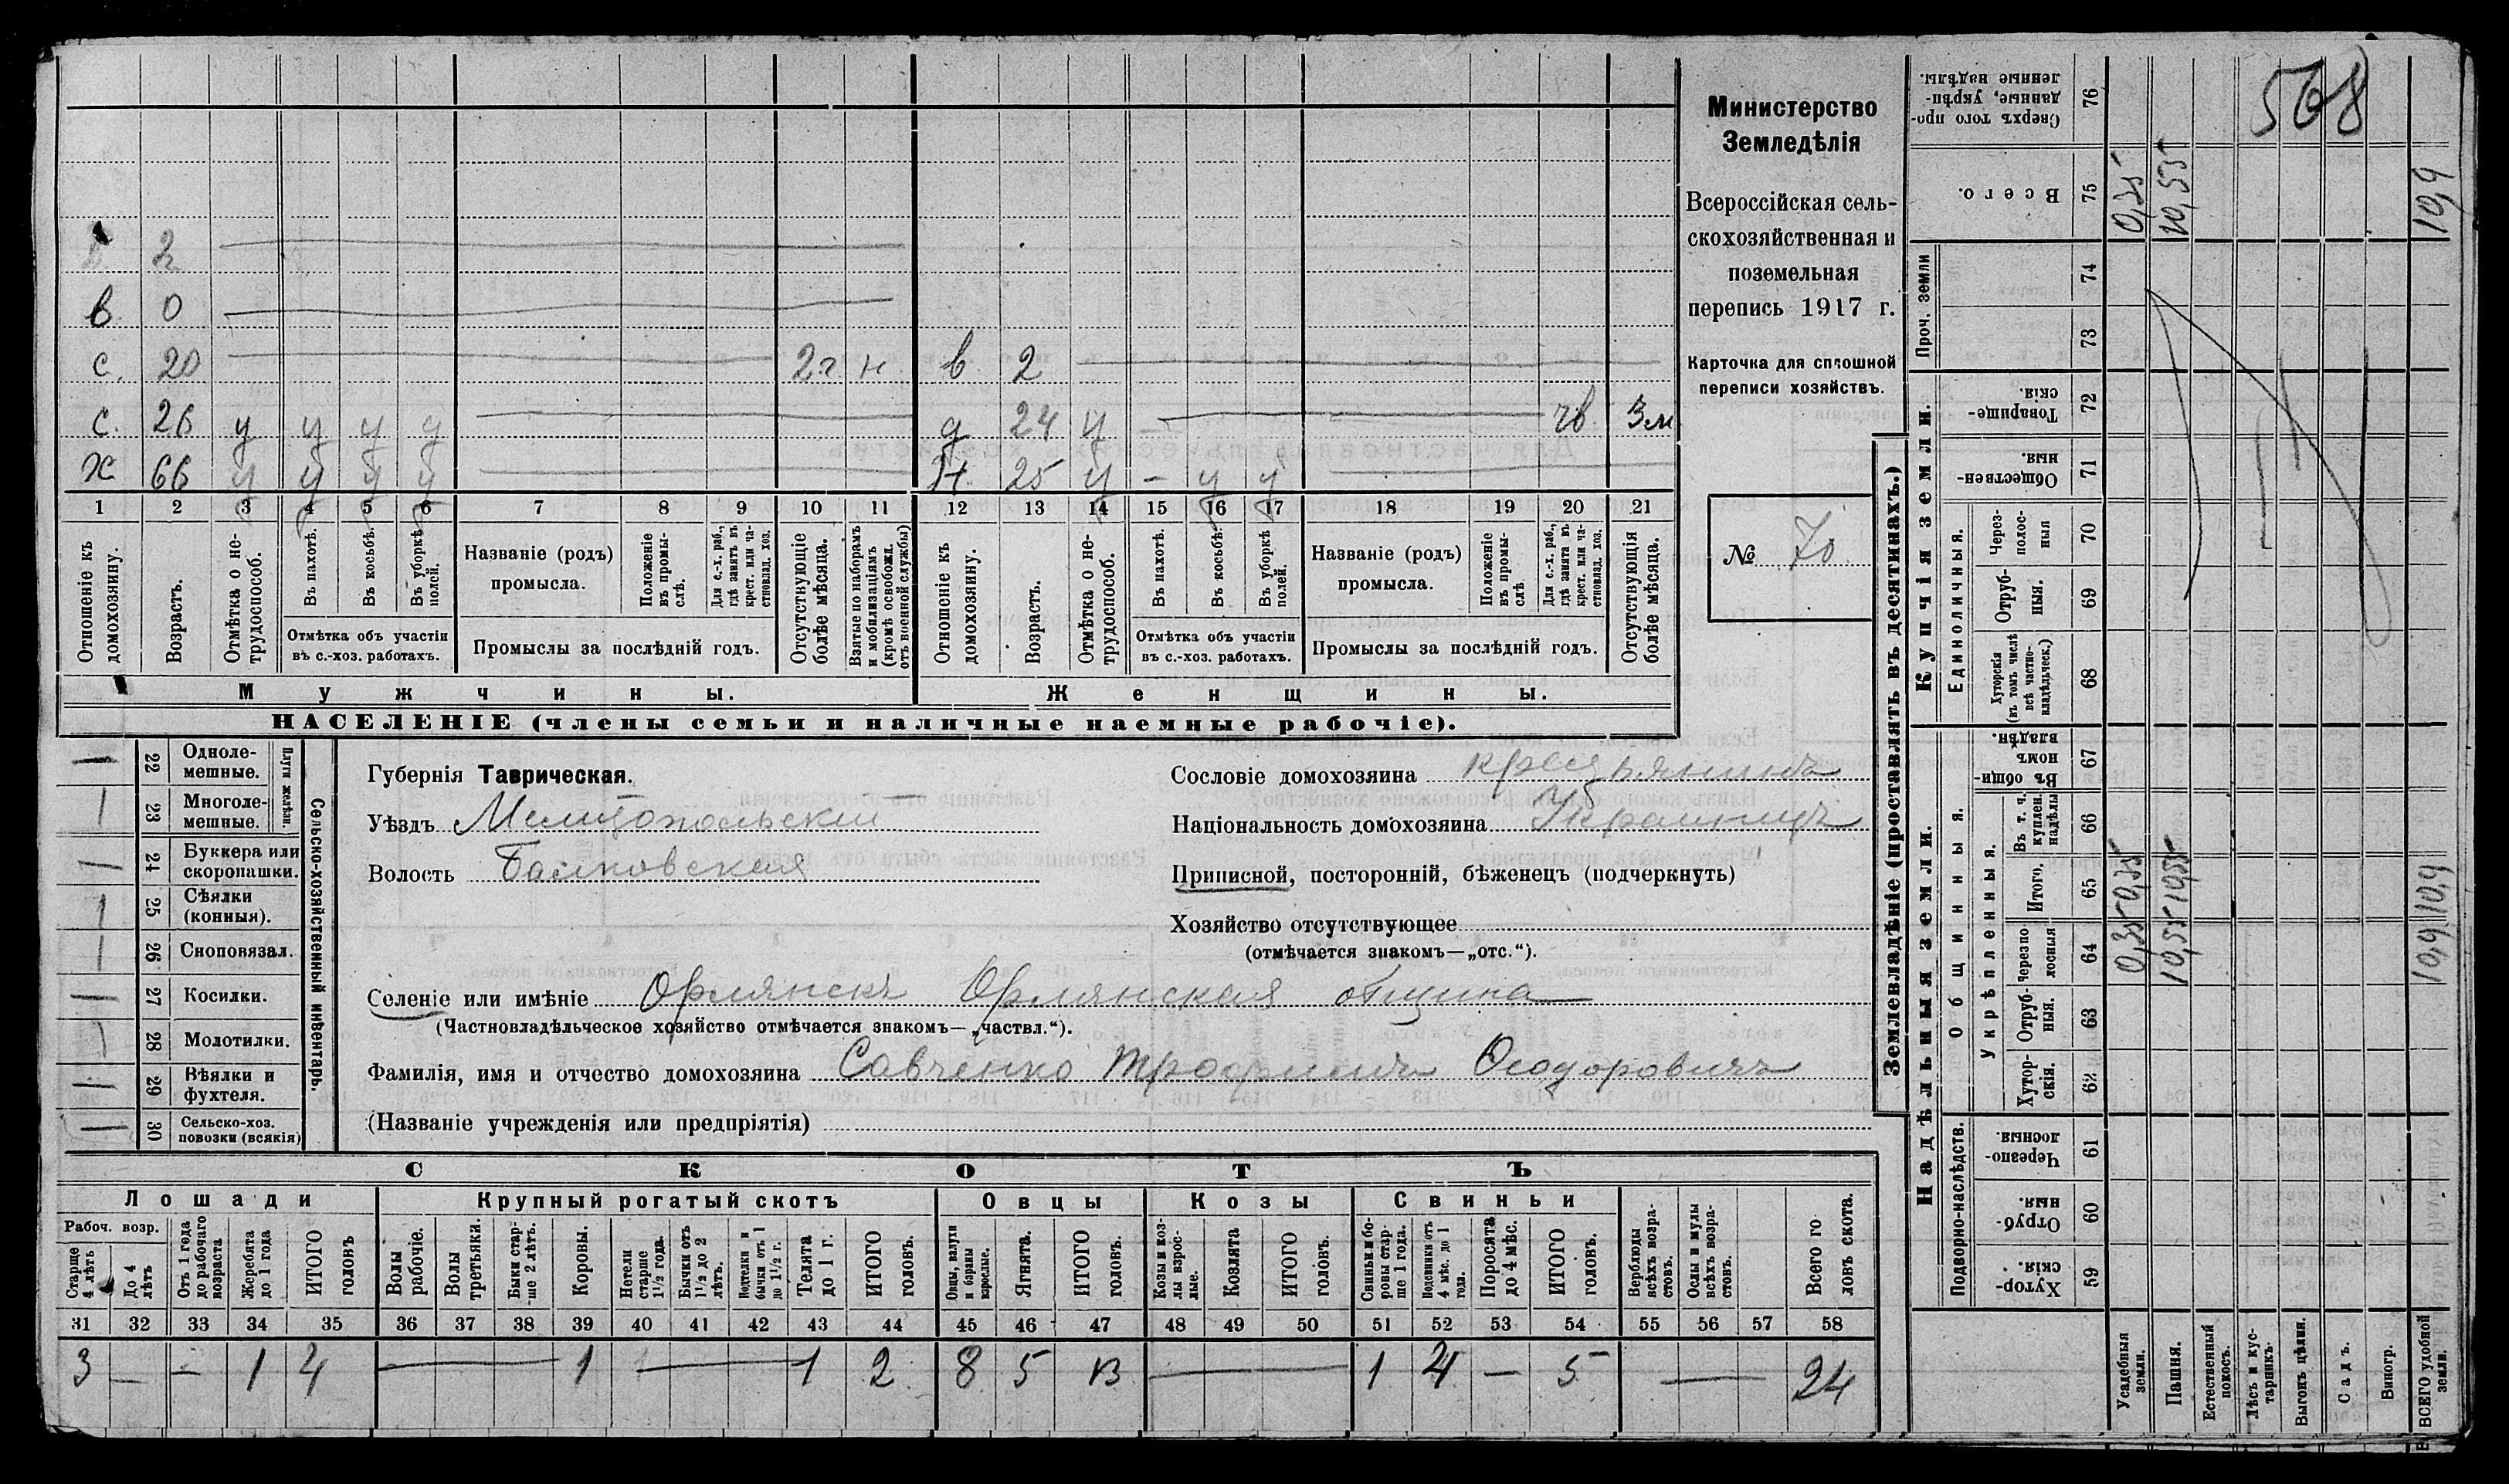 568
Министерство
Земледѣлія
Всероссійская сель-
скохозяйственная и
поземельная
перепись 1917 г.
Карточка для сплошной
переписи хозяйствъ.
№ 70
2
в 0
с. 20 2г н в 2
с. 26 у у у у д 24 у чв 3м
х 66 у у у у Н. 25 у - у у
1 2 3 4 5 6 7 8 9 10 11 12 13 14 15 16 17 18 19 20 21
Отношеніе къ домохозяину.
Возрастъ.
Отмѣтка о не-трудоспособ.
Въ пахотѣ.
Въ косьбѣ.
Въ уборкѣ полей.
Отмѣтка объ участіи
въ с.-хоз. работахъ.
Названіе (родъ)
промысла.
Положеніе въ промы-слѣ.
Для с.-х. раб., гдѣ занятъ въ крест. или ча-стновлад. хоз.
Промыслы за послѣдній годъ.
Отсутствующіе болѣе мѣсяца.
Взятые по наборамъ и мобилизаціямъ (кромѣ освобожд. отъ военной службы)
Отношеніе къ домохозяину.
Возрастъ.
Отмѣтка о не-трудоспособ.
Въ пахотѣ.
Въ косьбѣ.
Въ уборкѣ полей.
Отмѣтка объ участіи
въ с.-хоз. работахъ.
Названіе (родъ)
промысла.
Положеніе въ промы-слѣ
Для с.-х. раб., гдѣ занята въ крест. или ча-стновлад. хоз.
Промыслы за послѣдній годъ.
Отсутствующія болѣе мѣсяца.
Мужчины.
Женщины.
НАСЕЛЕНІЕ (члены семьи и наличные наемные рабочіе).
Сельско-хозяйственный инвентарь.
Плуги желѣзн.
22 Одноле-мешные. —
23 Многоле-мешные. 1
24 Буккера или скоропашки. —
25 Сѣялки (конныя). 1
26 Сноповязал. 1
27 Косилки. —
28 Молотилки. 1
29 Вѣялки и фухтеля. —
30 Сельско-хоз. повозки (всякія) —
Губернія Таврическая.
Уѣздъ Мелитопольскій
Волость Балковская
Сословіе домохозяина крестьянинъ
Національность домохозяина Украинецъ
Приписной, посторонній, бѣженецъ (подчеркнуть)
Хозяйство отсутствующее
(отмѣчается знакомъ—„отс.“).
Селеніе или имѣніе Орлянскъ Орлянская община
(Частновладѣльческое хозяйство отмѣчается знакомъ—„частвл.“).
Фамилія, имя и отчество домохозяина Савченко Трофимъ Феодоровичъ
(Названіе учрежденія или предпріятія)
СКОТЪ
Лошади
Крупный рогатый скотъ
Овцы
Козы
Свиньи
Рабоч. возр.
Старше 4 лѣтъ
До 4 лѣтъ
Отъ 1 года до рабочаго возраста
Жеребята до 1 года
ИТОГО головъ
Волы рабочіе.
Волы третьяки.
Быки стар-ше 2 лѣтъ.
Коровы.
Нетели старше 1½ года.
Бычки отъ 1½ до 2 лѣтъ.
Нетелки и бычки отъ 1 до 1½ г.
Телята до 1 г.
ИТОГО головъ.
Овцы, валухи и бараны взрослые.
Ягнята.
ИТОГО головъ.
Козы и коз-лы взрос-лые.
Козлята
ИТОГО головъ.
Свиньи и бо-ровы стар-ше 1 года.
Подсвинки отъ 4 мѣс. до 1 года.
Поросята до 4 мѣс.
ИТОГО головъ.
Верблюды всѣхъ возра-стовъ.
Ослы и мулы всѣхъ возра-стовъ.
Всего го ловъ скота.
31 32 33 34 35 36 37 38 39 40 41 42 43 44 45 46 47 48 49 50 51 52 53 54 55 56 57 58
3 — — 1 4 — 1 — 1 2 8 5 13 — 1 4 — 5 — 24
Землевладѣніе (проставлять въ десятинахъ.)
Надѣльныя земли.
Купчія земли.
Проч. земли
Подворно-наслѣдств.
Общинныя.
Укрѣпленныя.
Единоличныя.
59 Хутор-скія.
60 Отруб-ныя.
61 Черезпо-лосныя.
62 Хутор-скія.
63 Отруб-ныя.
64 Черезпо-лосныя
65 Итого.
66 Въ т. ч. куплен. надѣлы
67 Въ общин-номъ владѣн.
68 Хуторскія (въ томъ числѣ всѣ частно-владѣльческ.)
69 Отруб-ныя.
70 Через-полос-ныя
71 Обществен-ныя.
72 Товарище-скія.
73
74
75 Всего.
76 Сверхъ того про-данные, укрѣп-ленные надѣлы.
Усадебныя земли. 0,35 0,35 0,35
Пашня. 10,55 10,55 10,55
Естественный покосъ.
Лѣсъ и кус-тарникъ.
Выгонъ цѣлин.
Садъ.
Виногр.
ВСЕГО удобной земли. 10,9 10,9 10,9